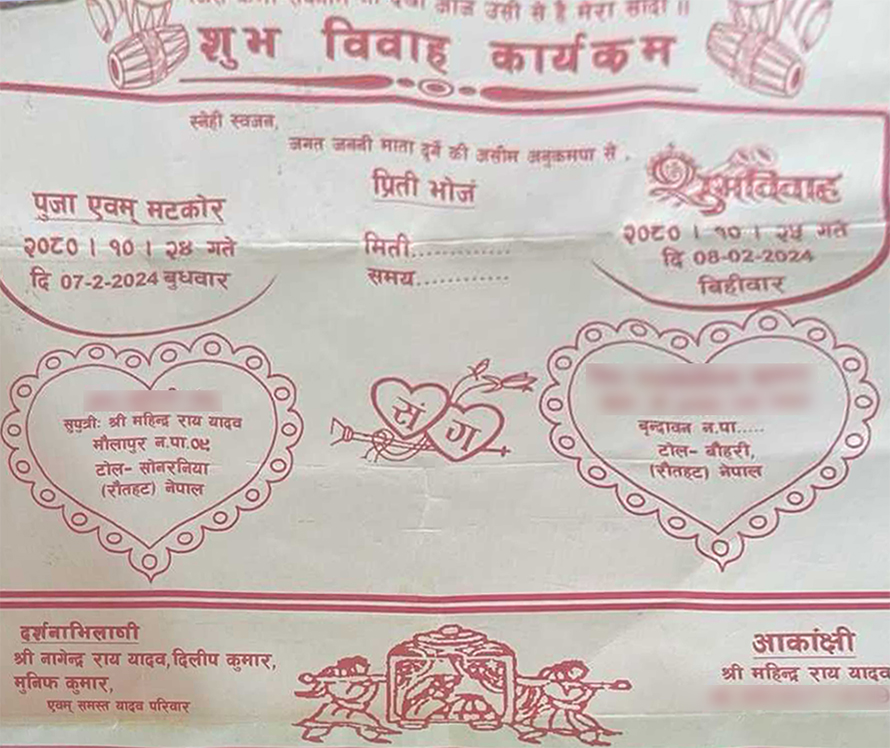 उसी से है मेरा सादी ॥
शुभ विवाह कार्यकम
स्नेही स्वजन,
जगत जननी माता दुर्गे की असीम अनुकमपा से ,
पुजा एवम् मटकोर
२०८० । १० । २४ गते
दि 07-2-2024 बुधवार
प्रिती भोजं
मिती..............
समय............
शुभविवाह
२०८० । १० । २५ गते
दि 08-02-2024
बिहीवार
सुपुत्रीः श्री महिन्द्र राय यादव
मौलापुर न.पा.०५
टोल- सोनरनिया
(रौतहट) नेपाल
सं ग
बृन्दावन न.पा.....
टोल- बौहरी,
(रौतहट) नेपाल
दर्शनाभिलाषी
श्री नागेन्द्र राय यादव,दिलीप कुमार,
मुनिफ कुमार,
एवम् समस्त यादव परिवार
आकांक्षी
श्री महिन्द्र राय यादव